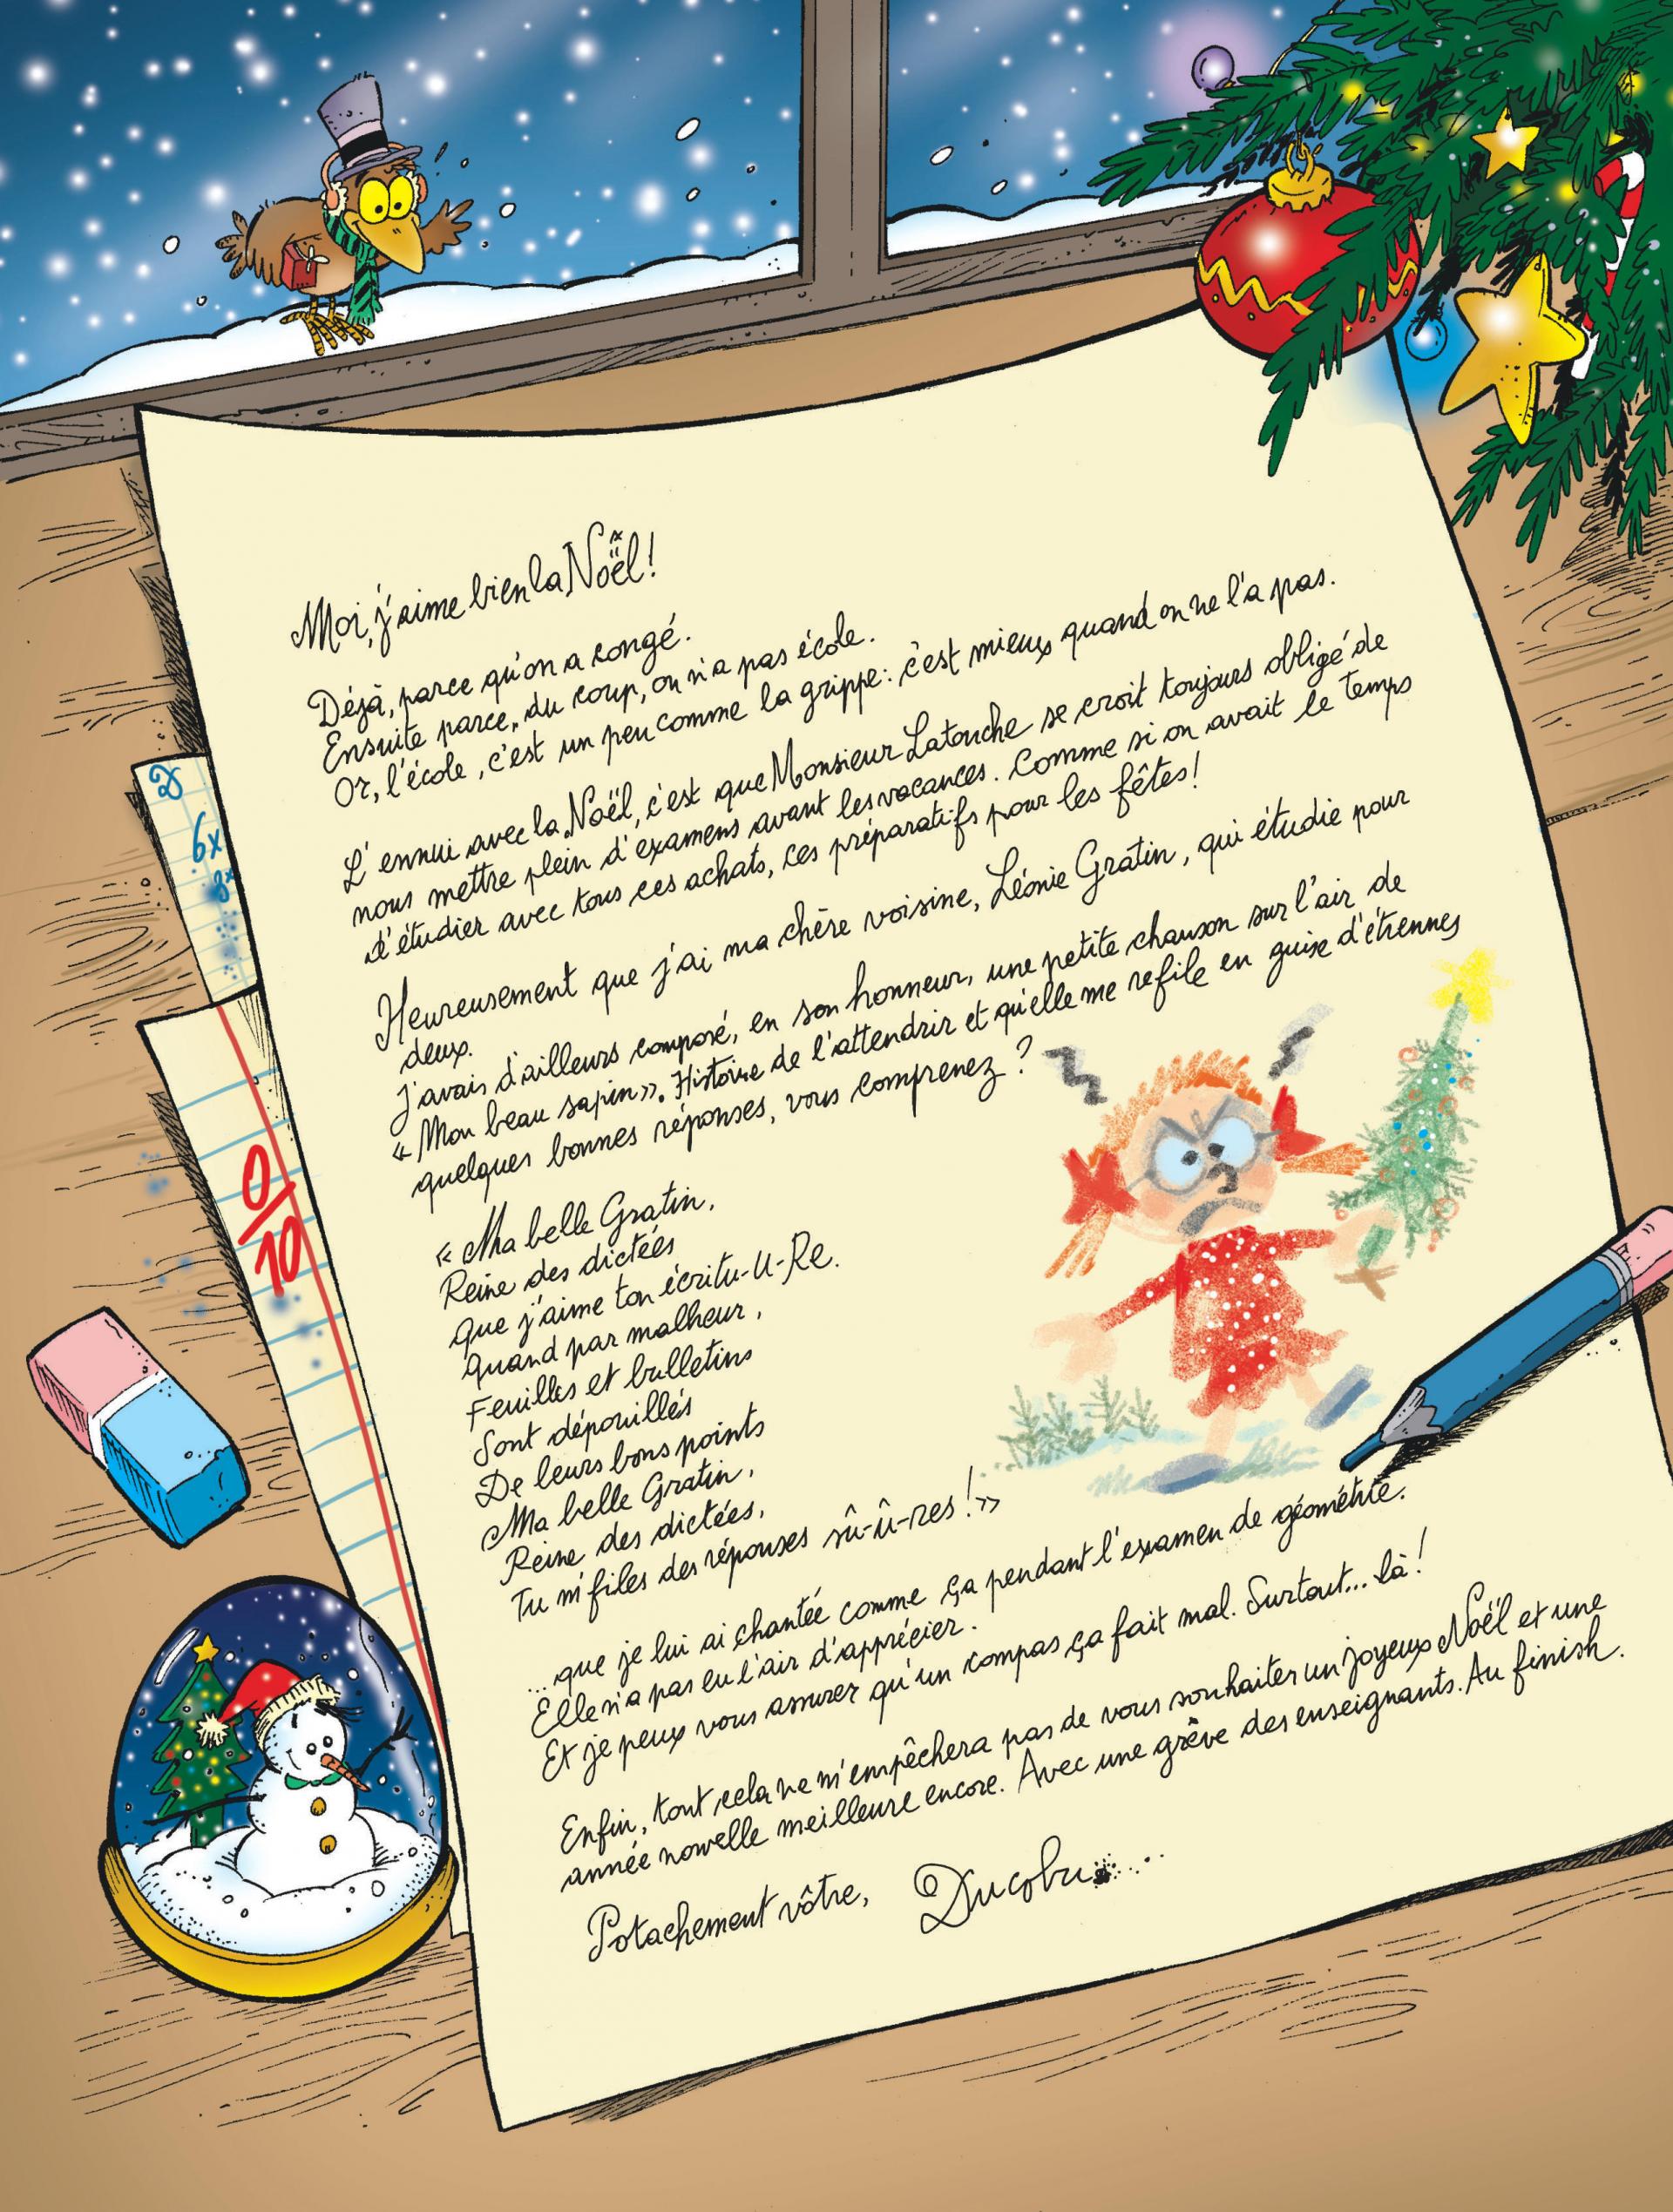 Moi, j'aime bien la Noël !
Déjà, parce qu'on a congé.
Ensuite parce, du coup, on n'a pas école.
Or, l'école, c'est un peu comme la grippe : c'est mieux quand on ne l'a pas.
L'ennui avec la Noël, c'est que Monsieur Latouche se croit toujours obligé de
nous mettre plein d'examens avant les vacances. Comme si on avait le temps
d'étudier avec tous ces achats, ces préparatifs pour les fêtes !
Heureusement que j'ai ma chère voisine, Léonie Gratin, qui étudie pour
deux.
J'avais d'ailleurs composé, en son honneur, une petite chanson sur l'air de
« Mon beau sapin ». Histoire de l'attendrir et qu'elle me refile en guise d'étrennes
quelques bonnes réponses, vous comprenez ?
« Ma belle Gratin,
Reine des dictées
que j'aime ton écritu-U-Re.
Quand par malheur,
Feuilles et bulletins
Sont dépouillés
De leurs bons points
Ma belle Gratin,
Reine des dictées,
Tu m'files des réponses sû-û-res ! »
...que je lui ai chantée comme ça pendant l'examen de géométrie.
Elle n'a pas eu l'air d'apprécier.
Et je peux vous assurer qu'un compas ça fait mal. Surtout... là !
Enfin, tout cela ne m'empêchera pas de vous souhaiter un joyeux Noël et une
année nouvelle meilleure encore. Avec une grève des enseignants. Au finish.
Potachement vôtre, Ducobu...
6x
8x
0/10